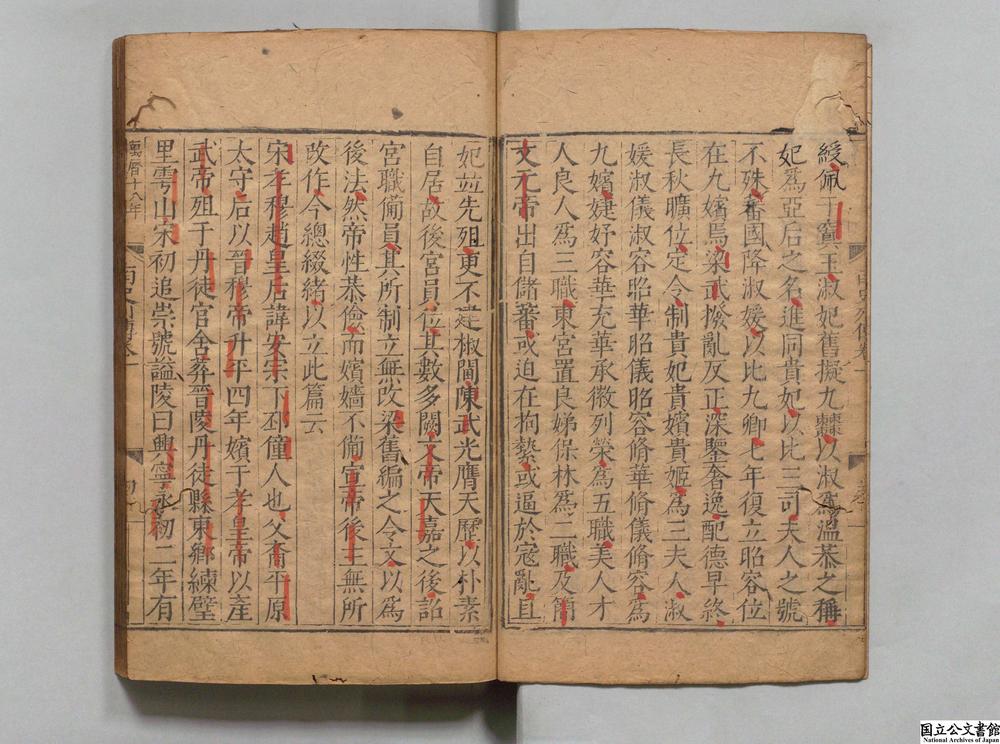 綬佩于寘玉淑妃舊擬九棘以淑爲溫恭之稱
妃爲亞后之名進同貴妃以比三司夫人之號
不殊蕃國降淑媛以比九卿七年復立昭容位
在九嬪焉梁武撥亂反正深鑒奢逸配德早終
長秋曠位定令制貴妃貴嬪貴姬爲三夫人淑
媛淑儀淑容昭華昭儀昭容脩華脩儀脩容爲
九嬪婕妤容華充華承徽列榮爲五職美人才
人良人爲三職東宮置良娣保林爲二職及簡
文元帝出自儲蕃或迫在拘縶或逼於寇亂且
妃並先殂更不建椒閫陳武光膺天歷以朴素
自居故後宮員位其數多闕文帝天嘉之後詔
宮職備員其所制立無改梁舊編之令文以爲
後法然帝性恭儉而嬪嬙不備宣帝後主無所
改作今總綴緒以立此篇云
宋孝穆趙皇后諱安宗下邳僮人也父裔平原
太守后以晉穆帝升平四年嬪于孝皇帝以產
武帝殂于丹徒官舍葬晉陵丹徒縣東鄉練壁
里雩山宋初追崇號謚陵曰興寧永初二年有
萬曆十八年
国立公文書館
National Archives of Japan